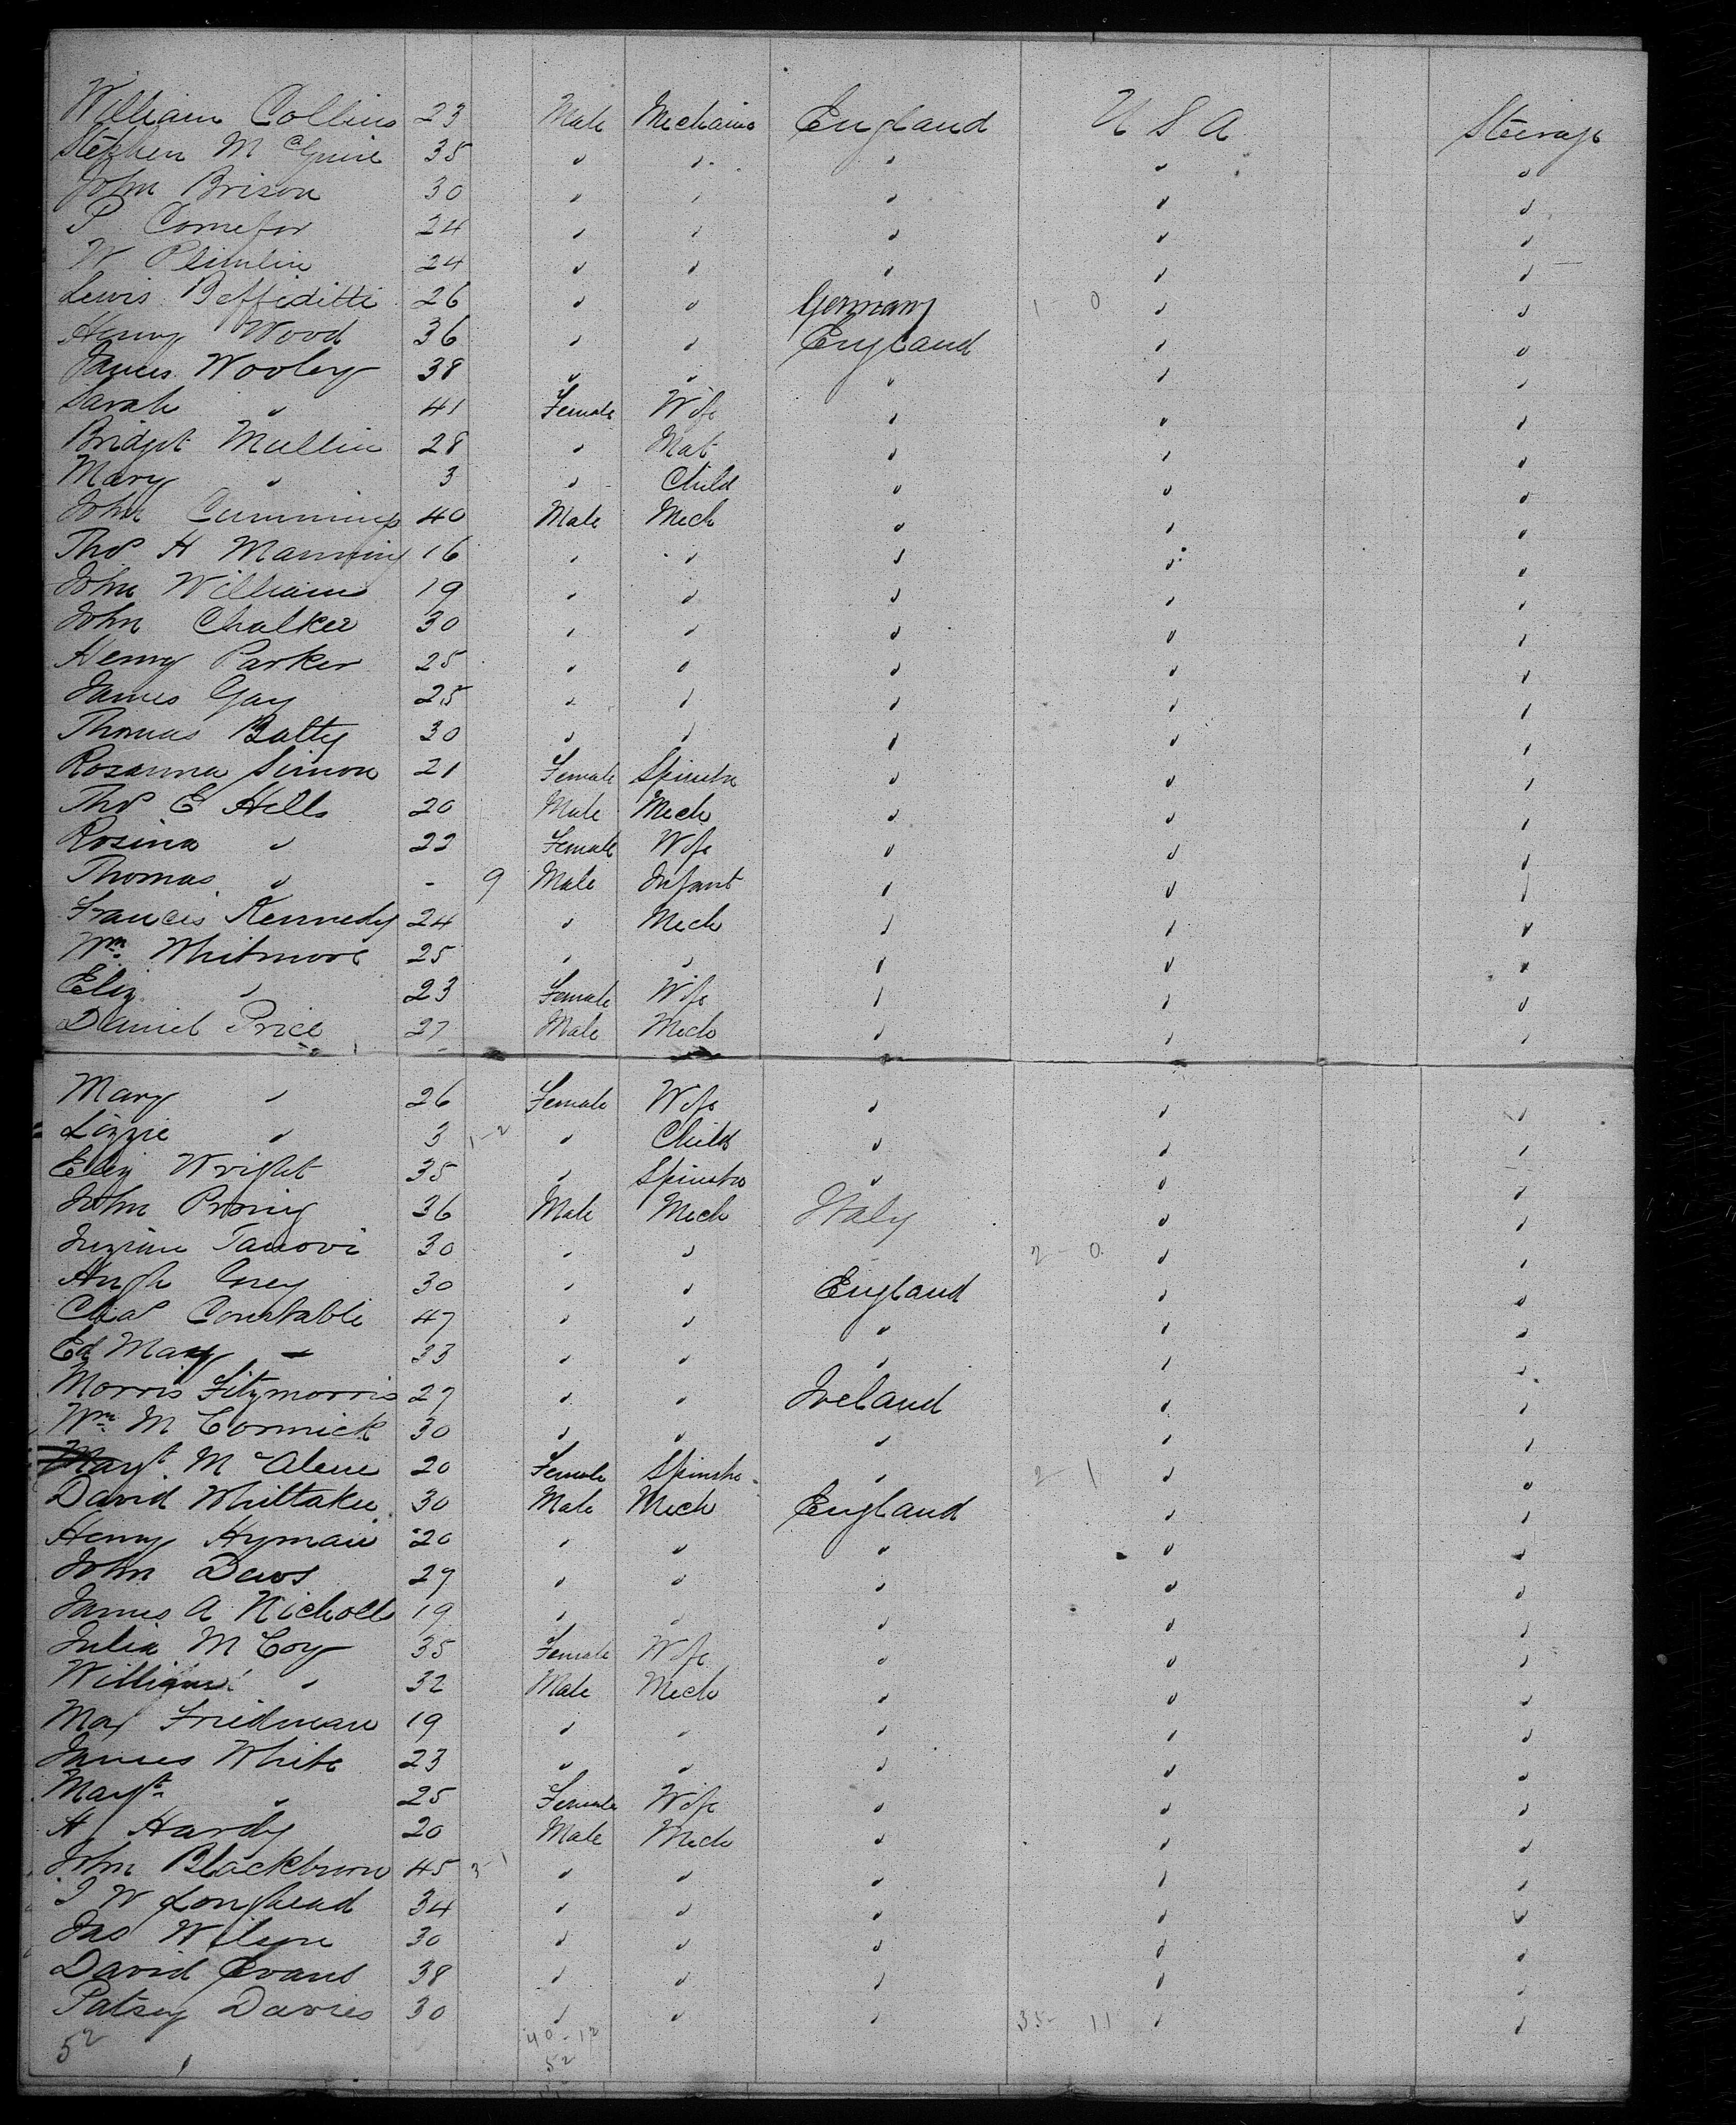 William Collins 23 Male Mechanic England U S A Steerage
Stephen McGuire 35 " " " " "
John Brison 30 " " " " "
P Comefor 24 " " " " "
W Plimlin 24 " " " " "
Lewis Beffiditti 26 " " Germany 1 0 " "
Henry Wood 36 " " England " "
James Wooley 38 " " " " "
Sarah " 41 Female Wife " " "
Bridget Mullin 28 " Mat " " "
Mary " 3 " Child " " "
John Cummings 40 Male Mech " " "
Thos H Manning 16 " " " " "
John William 19 " " " " "
John Chalker 30 " " " " "
Henry Parker 25 " " " " "
James Gay 25 " " " " "
Thomas Batty 30 " " " " "
Rosanna Simon 21 Female Spinster " " "
Thos E Hills 20 Male Mech " " "
Rosina " 22 Female Wife " " "
Thomas " - 9 Male Infant " " "
Francis Kennedy 24 " Mech " " "
Wm Whitmore 25 " " " " "
Eliz " 23 Female Wife " " "
Daniel Price 27 Male Mech " " "
Mary " 26 Female Wife " " "
Lizzie " 3 1-2 " Child " " "
Eliz Wright 35 " Spinster " " "
John 36 Male Mech Italy " "
Tanovi 30 " " 2 - 0 " "
Hugh 30 " " England " "
Chas Constable 47 " " " " "
Ed May - 33 " " " " "
Morris Fitzmorris 27 " " Ireland " "
Wm McCormick 30 " " " " "
Margt McAlene 20 Female Spinster " 2 - 1 " "
David Whittaker 30 Male Mech England " "
Henry Hyman 20 " " " " "
John Dews 27 " " " " "
James A Nicholls 19 " " " " "
Julia McCoy 35 Female Wife " " "
William " 32 Male Mech " " "
Max Friedman 19 " " " " "
James White 23 " " " " "
Margt " 25 Female Wife " " "
H Hardy 20 Male Mech " " "
John Blackburn 45 3-1 " " " " "
J W Longhead 34 " " " " "
Jas Wilson 30 " " " " "
David Evans 38 " " " " "
Patsey Davies 30 " " " 35 - 11 " "
52 40 - 12
52